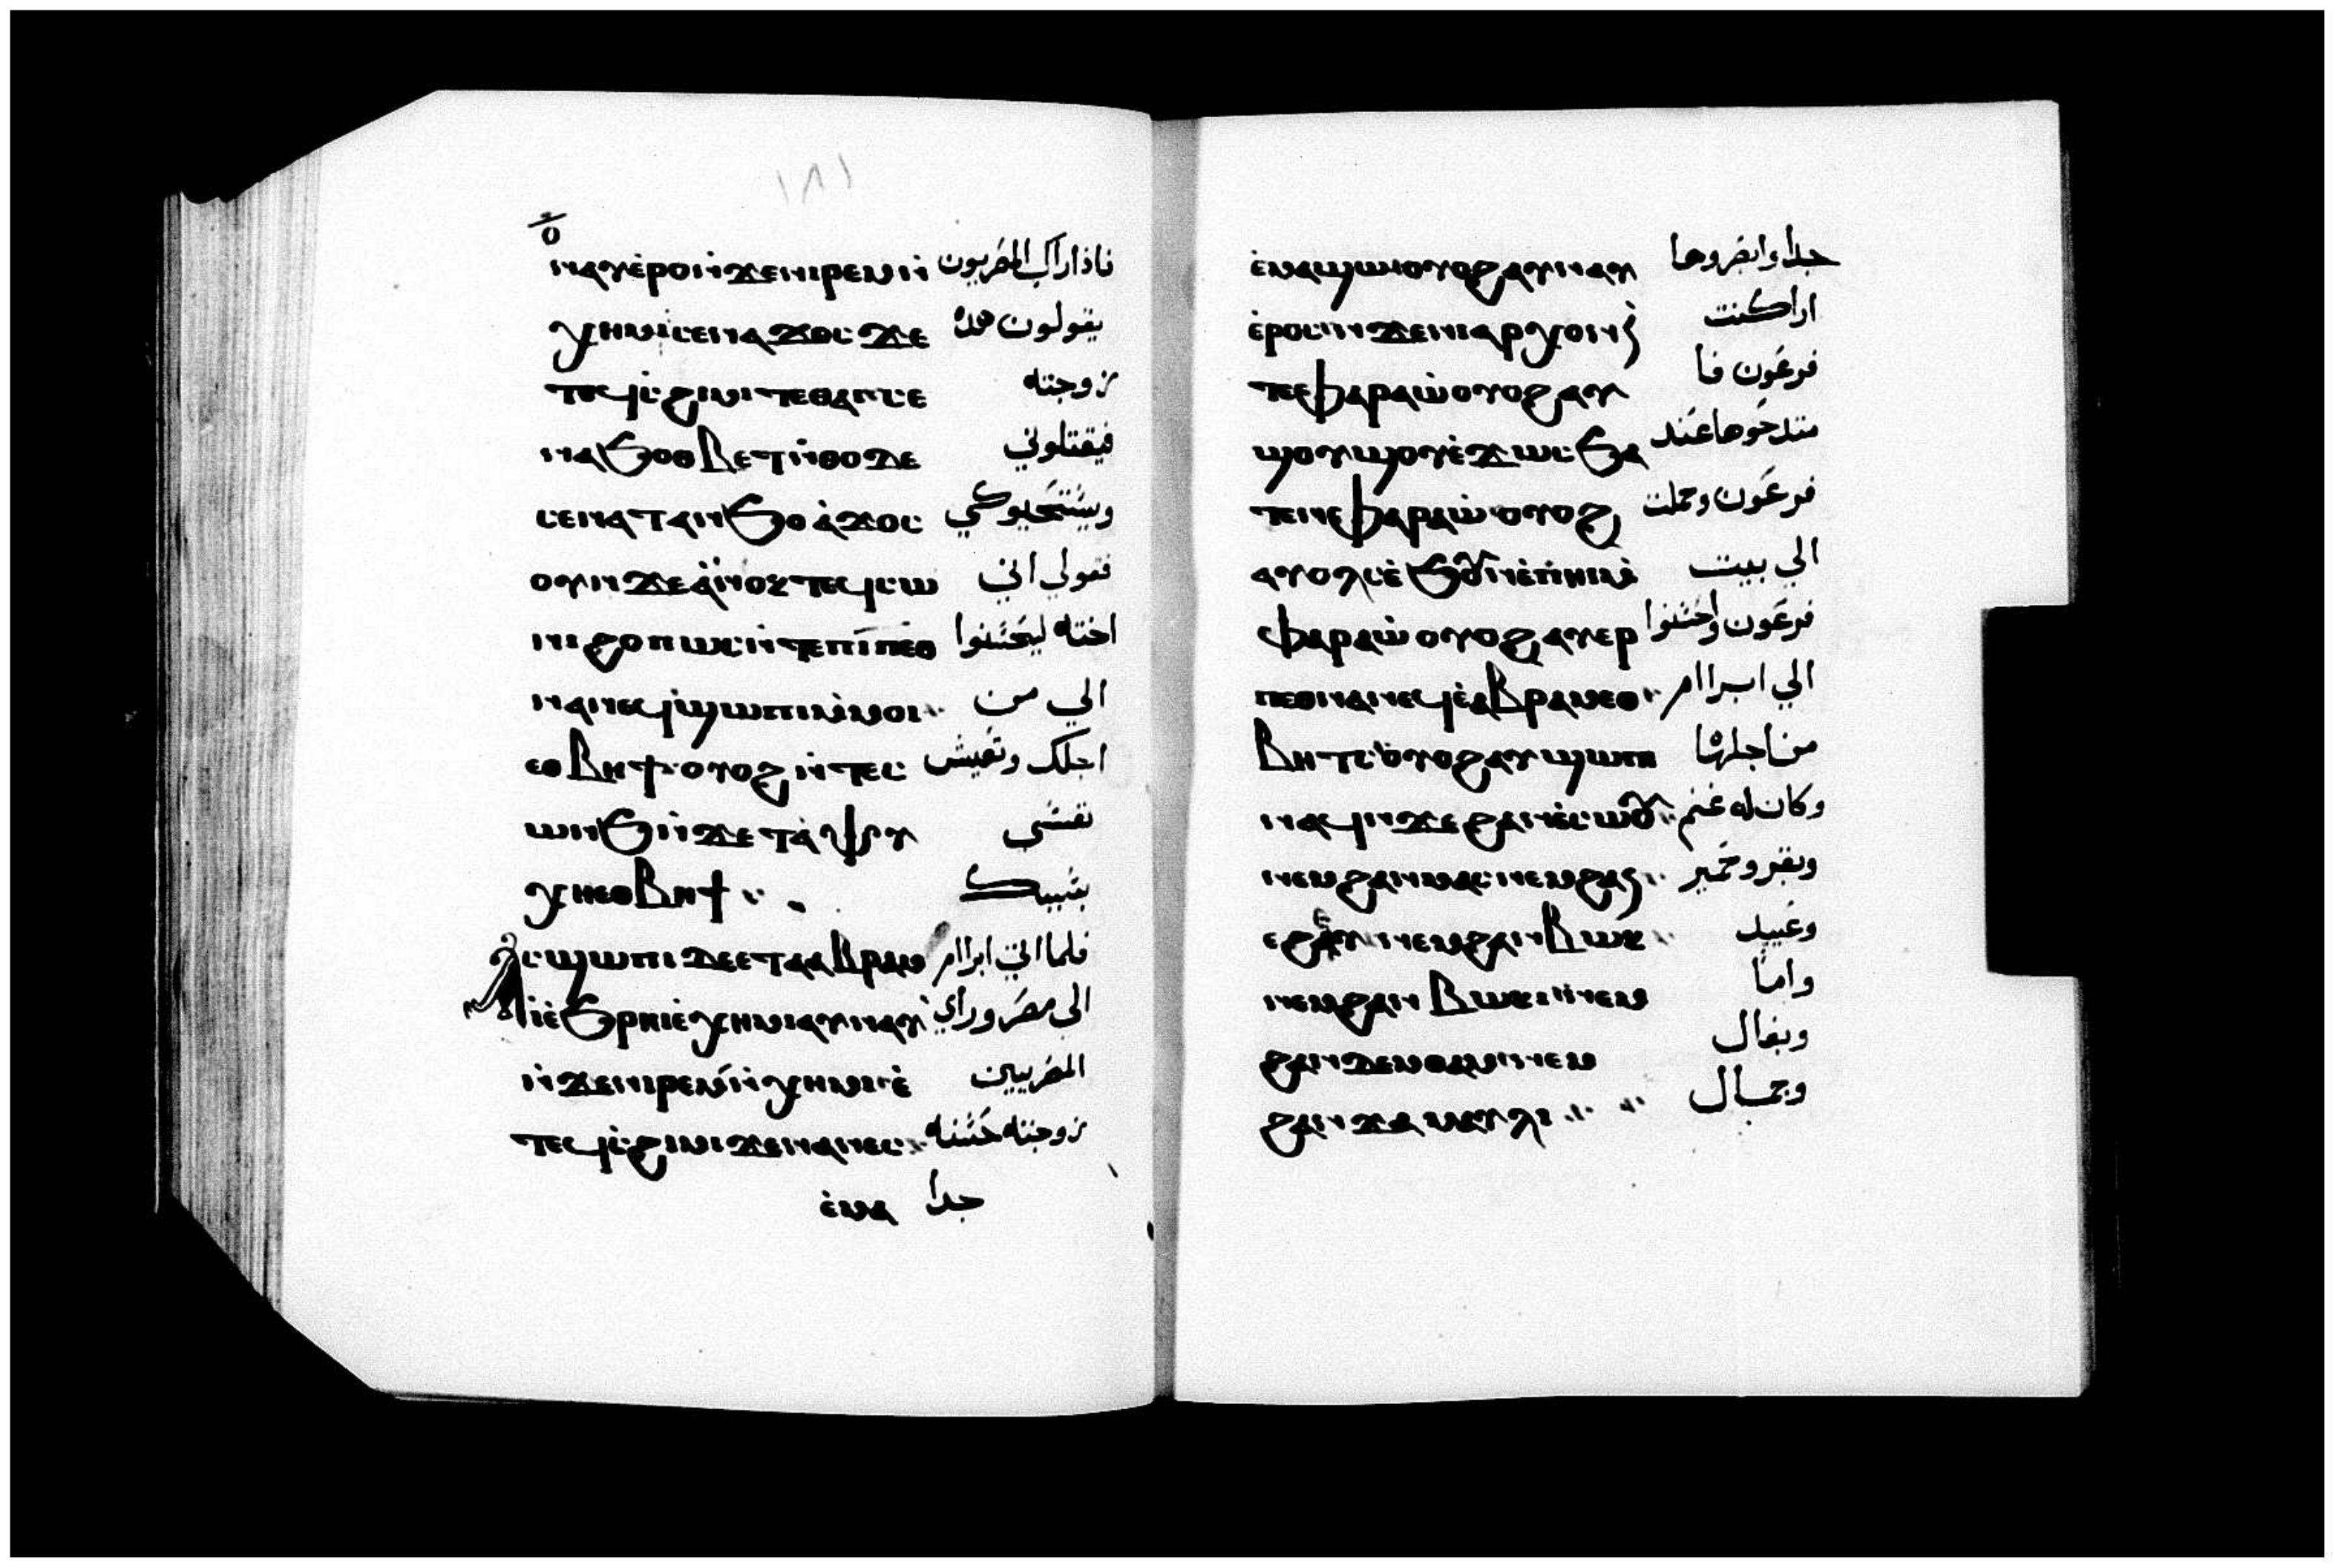 ١٨١
ⲟ̅
ⲛⲁⲩⲉ̀ⲣⲟⲛ̀ϫⲉⲛⲓⲣⲉⲙⲛ̀ فاذا راك المصريون
ⲭⲏⲙⲓⲥⲉⲛⲁϫⲟⲥϫⲉ يقولون هذه
ⲧⲉϥⲥ̀ϩⲓⲙⲓⲧⲉⲑⲁⲓⲥⲉ زوجته
ⲛⲁϧⲟⲑⲃⲉⲧⲛ̀ⲑⲟⲇⲉ فيقتلوني
ⲥⲉⲛⲁⲧⲁⲛϧⲟⲁ̀ϫⲟⲥ ويستحيوكي
ⲟⲩⲛϫⲉⲁ̀ⲛⲟⲕⲧⲉϥⲥⲱ فقولي اني
ⲛⲓϩⲟⲡⲱⲥⲛ̀ⲧⲉⲡⲓⲡⲉⲑ اخته ليحسنوا
ⲛⲁⲛⲉϥϣⲱⲡⲓⲙ̀ⲙⲟⲓ الي من
ⲉⲑⲃⲏϯⲟⲩⲟϩⲛ̀ⲧⲉⲥ اجلك وتعيش
ⲱⲛϧⲛ̀ϫⲉⲧⲁⲯⲩ نفسي
ⲭⲏⲉⲑⲃⲏϯ بسببك
ⲁⲥϣⲱⲡⲓⲇⲉⲉⲧⲁⲁⲃⲣⲁⲙ فلما اتي ابراام
ⲓ̀ⲉ̀ϧⲣⲏⲓⲉ̀ⲭⲏⲙⲓⲁⲩⲛⲁⲩ الي مصر وراي
ⲛ̀ϫⲉⲛⲓⲣⲉⲙⲛ̀ⲭⲏⲙⲓⲉ̀ المصريين
ⲧⲉϥⲥ̀ϩⲓⲙⲓϫⲉⲛⲁⲛⲉⲥ زوجته حسنه
ⲉ̀ⲙⲁ جدا
ⲉ̀ⲙⲁϣⲱⲟⲩⲟϩⲁⲩⲛⲁⲩ جدا وابصروها
ⲉ̀ⲣⲟⲥⲛ̀ϫⲉⲛⲓⲁⲣⲭⲟⲛ اراكنت
ⲧⲉⲫⲁⲣⲁⲱ̀ⲟⲩⲟϩⲁⲩ فرعون فا
ϣⲟⲩϣⲟⲩⲉ̀ϫⲱⲥϧⲁ متدحوها عند
ⲧⲉⲛⲫⲁⲣⲁⲱ̀ⲟⲩⲟϩ فرعون وحملت
ⲁⲩⲟⲗⲥⲉ̀ϧⲟⲩⲛⲉ̀ⲡⲏⲓⲙ̀ الي بيت
ⲫⲁⲣⲁⲱ̀ⲟⲩⲟϩⲁⲩⲉⲣ فرعون واحسنوا
ⲡⲉⲑⲛⲁⲛⲉϥⲉ̀ⲁⲃⲣⲁⲙⲉⲑ الي ابراام
ⲃⲏⲧⲥⲟⲩⲟϩⲁⲩϣⲱⲡⲓ من اجلها
ⲛⲁϥⲛ̀ϫⲉϩⲁⲛⲉ̀ⲥⲱⲟⲩ وكان له غنم
ⲛⲉⲙϩⲁⲛⲙⲁⲥⲓⲛⲉⲙϩⲁⲛ وبقر وحمير
ⲉϩⲉⲩⲛⲉⲙϩⲁⲛⲃⲱⲕ وعبيد
ⲛⲉⲙϩⲁⲛⲃⲱⲕⲓⲛⲉⲙ واما
ϩⲁⲛϫⲉⲙⲑⲁⲙⲛⲉⲙ وبغال
ϩⲁⲛϫⲁⲙⲁⲩⲗⲓ وجمال